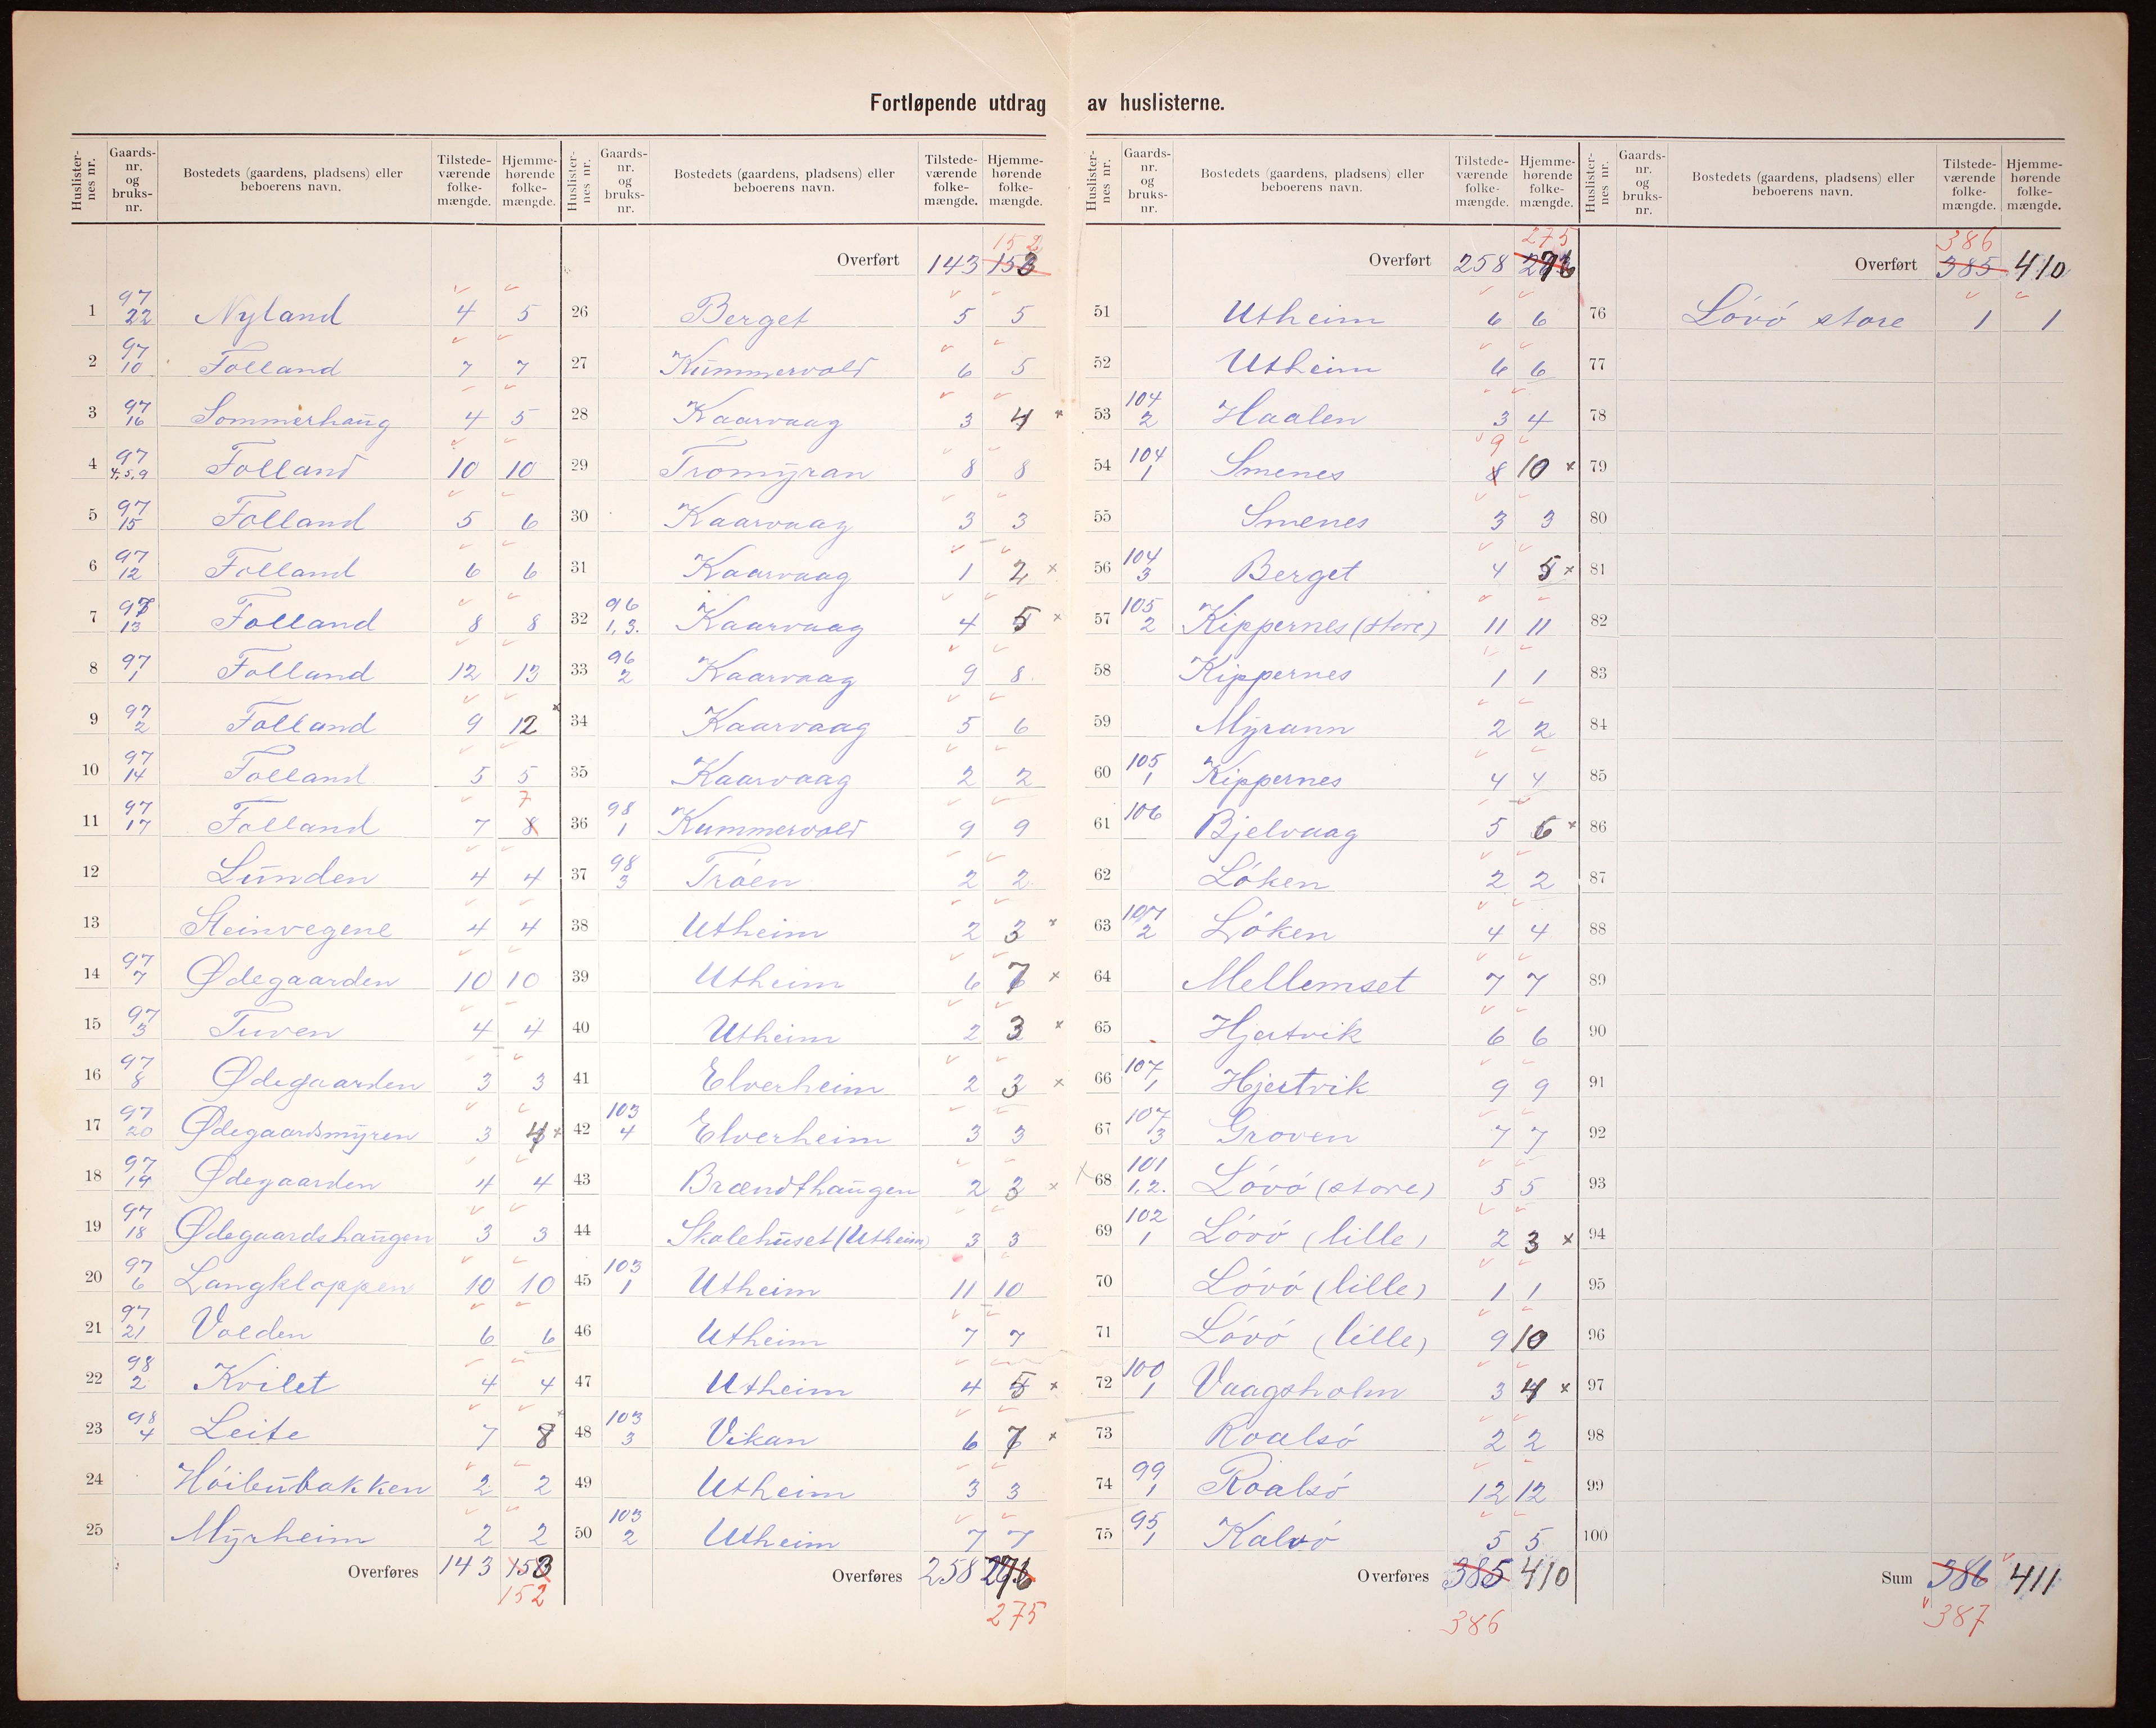 Fortløpende utdrag av huslisterne.
Huslisternes nr. Gaards-nr. og bruks-nr. Bostedets (gaardens, pladsens) eller beboerens navn. Tilstedeværende folkemængde. Hjemmehørende folkemængde.
1 97 22 Nyland 4 5
2 97 10 Folland 7 7
3 97 16 Sommerhaug 4 5
4 97 4,5,9 Folland 10 10
5 97 15 Folland 5 6
6 97 12 Folland 6 6
7 97 13 Folland 8 8
8 97 1 Folland 12 13
9 97 2 Folland 9 12 x
10 97 14 Folland 5 5
11 97 17 Folland 7 8 7
12 Lunden 4 4
13 Steinvegene 4 4
14 97 7 Ødegaarden 10 10
15 97 3 Tuven 4 4
16 97 8 Ødegaarden 3 3
17 97 20 Ødegaardsmyren 3 4 x
18 97 19 Ødegaarden 4 4
19 97 18 Ødegaardshaugen 3 3
20 97 6 Langkloppen 10 10
21 97 21 Volden 6 6
22 98 2 Kvilet 4 4
23 98 4 Leite 7 8 x
24 Höibubakken 2 2
25 Myrheim 2 2
Overføres 143 153
152
Huslisternes nr. Gaards-nr. og bruks-nr. Bostedets (gaardens, pladsens) eller beboerens navn. Tilstedeværende folkemængde. Hjemmehørende folkemængde.
152
Overført 143 153
26 Berget 5 5
27 Kummervold 6 5
28 Kaarvaag 3 4 x
29 Tromyran 8 8
30 Kaarvaag 3 3
31 Kaarvaag 1 2 x
32 96 1,3. Kaarvaag 4 5 x
33 96 2 Kaarvaag 9 8
34 Kaarvaag 5 6
35 Kaarvaag 2 2
36 98 1 Kummervold 9 9
37 98 3 Tröen 2 2
38 Utheim 2 3 x
39 Utheim 6 7 x
40 Utheim 2 3 x
41 Elverheim 2 3 x
42 103 4 Elverheim 3 3
43 Brændthaugen 2 3 x
44 Skolehuset (Utheim) 3 3
45 103 1 Utheim 11 10
46 Utheim 7 7
47 Utheim 4 5 x
48 103 3 Vikan 6 7 x
49 Utheim 3 3
50 103 2 Utheim 7 7
Overføres 258 276
275
Huslisternes nr. Gaards-nr. og bruks-nr. Bostedets (gaardens, pladsens) eller beboerens navn. Tilstedeværende folkemængde. Hjemmehørende folkemængde.
275
Overført 258 276
51 Utheim 6 6
52 Utheim 6 6
53 104 2 Haalen 3 4
54 104 1 Smenes 8 9 10 x
55 Smenes 3 3
56 104 3 Berget 4 5 x
57 105 2 Kippernes (store) 11 11
58 Kippernes 1 1
59 Myrann 2 2
60 105 1 Kippernes 4 4
61 106 Bjelvaag 5 6 x
62 Löken 2 2
63 107 2 Löken 4 4
64 Mellemset 7 7
65 Hjertvik 6 6
66 107 1 Hjertvik 9 9
67 107 3 Groven 7 7
x 68 101 1,2. Lövö (store) 5 5
69 102 1 Lövö (lille) 2 3 x
70 Lövö (lille) 1 1
71 Lövö (lille) 9 10
72 100 1 Vaagsholm 3 4 x
73 Roalsö 2 2
74 99 1 Roalsö 12 12
75 95 1 Kalvö 5 5
Overføres 385 410
386
Huslisternes nr. Gaards-nr. og bruks-nr. Bostedets (gaardens, pladsens) eller beboerens navn. Tilstedeværende folkemængde. Hjemmehørende folkemængde.
386
Overført 385 410
76 Lövö store 1 1
77
78
79
80
81
82
83
84
85
86
87
88
89
90
91
92
93
94
95
96
97
98
99
100
Sum 386 411
387